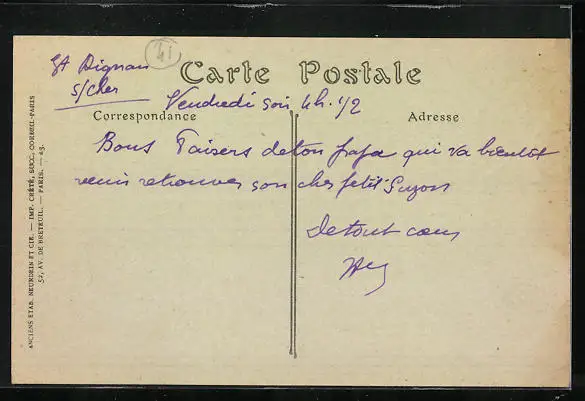 St Aignan
s/cher
41
Carte Postale
Vendredi soir 4h. 1/2
Correspondance
Adresse
Bons Baisers de ton papa qui va bientôt
venir retrouver son cher petit
De tout cœur
ANCIENS ETAB. NEURDEIN ET CIE. — IMP. CRÉTÉ, SUCC. CORBEIL-PARIS
52, AV. DE BRETEUIL. — PARIS. — 43.